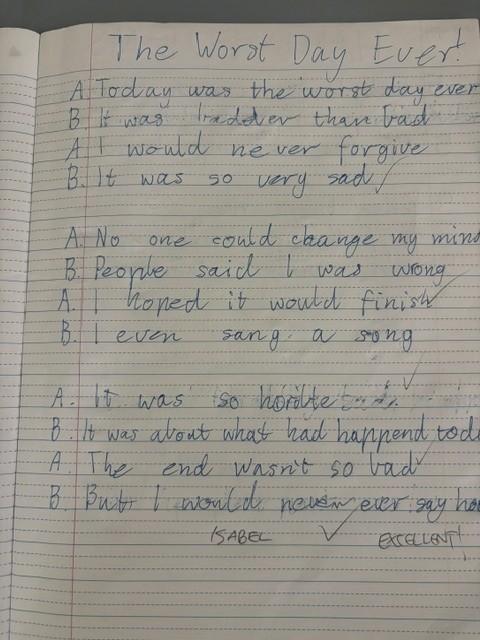 The Worst Day Ever!
A Today was the worst day ever
B It was badder than bad
A I would never forgive
B. It was so very sad
A. No one could change my mind
B. People said I was wrong
A. I hoped it would finish
B. I even sang a song
A. It was so
B. It was about what had happend
A. The end wasn't so bad
B. But I would never ever say
ISABEL EXCELLENT!